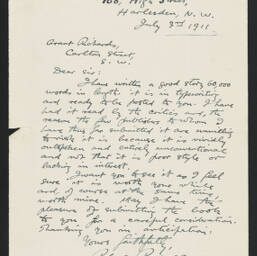 166, High Street,
Harlesden, N.W.
July 3rd 1911.
Grant Richards,
Carlton Street,
S. W.
Dear Sir:
I have written a good story 60,000
words in length. it is in typewriting
and ready to be posted to you. I have
had it read by the critics and, the
reason the few publishers to whom I
have thus far submitted it are unwilling
to risk it is because it is vividly
outspoken and entirely unconventional
and not that it is poor style or
lacking in interest.
I want you to see it as I feel
sure it is worth your while
and, of course at the same time
worth mine. May I have the
pleasure of submitting the book
to you for a careful consideration.
Thanking you in anticipation:
Yours faithfully,